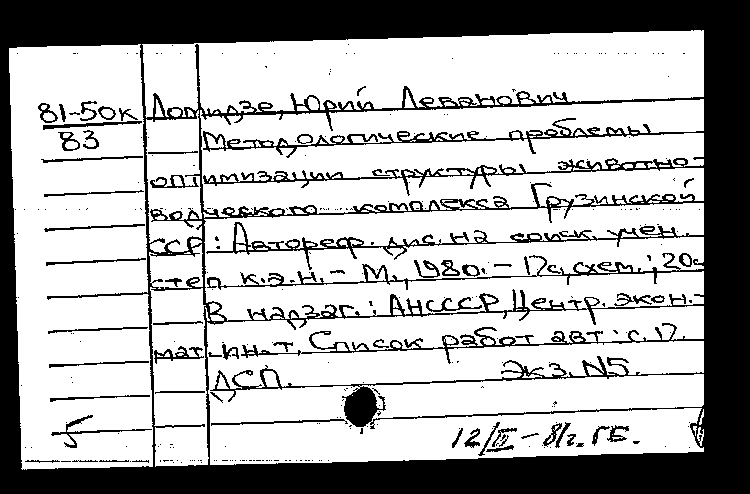 81-50к Ломидзе, Юрий Леванович
83 Методологические проблемы
оптимизации структуры животно-
водческого комплекса Грузинской
ССР: Автореф. дис. на соиск. учен.
степ. к.э.н. - М., 1980. - 17с, схем.; 20с
В надзаг.: АНСССР, Центр. экон.-
мат. ин-т. Список работ авт: с. 17.
ДСП. Экз. N5.
5 12/III - 81г. ГБ.